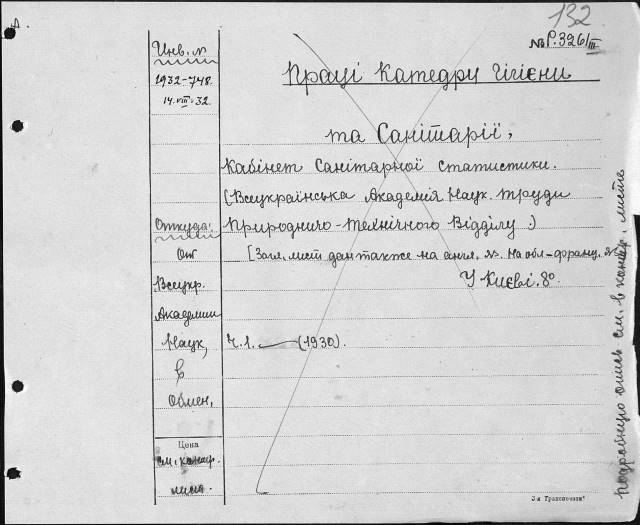 132
№ Р.326/III
Инв. №
1932-748.
14.VIII.32.
Праці Катедри Гігієни
та Санітарії,
Кабінет Санітарної статистики.
(Всеукраїнська Академія Наук. Труди
Природничо-технічного Відділу.)
[Загл. лист дан также на англ. яз. На обл-франц. яз.
У Києві. 8°.
Ч.1. — (1930).
Откуда:
От
Всеукр.
Академии
Наук,
в
обмен.
Цена
см. контр.
лист.
подробную опись см. в контр. листе
3-я Транспечати"